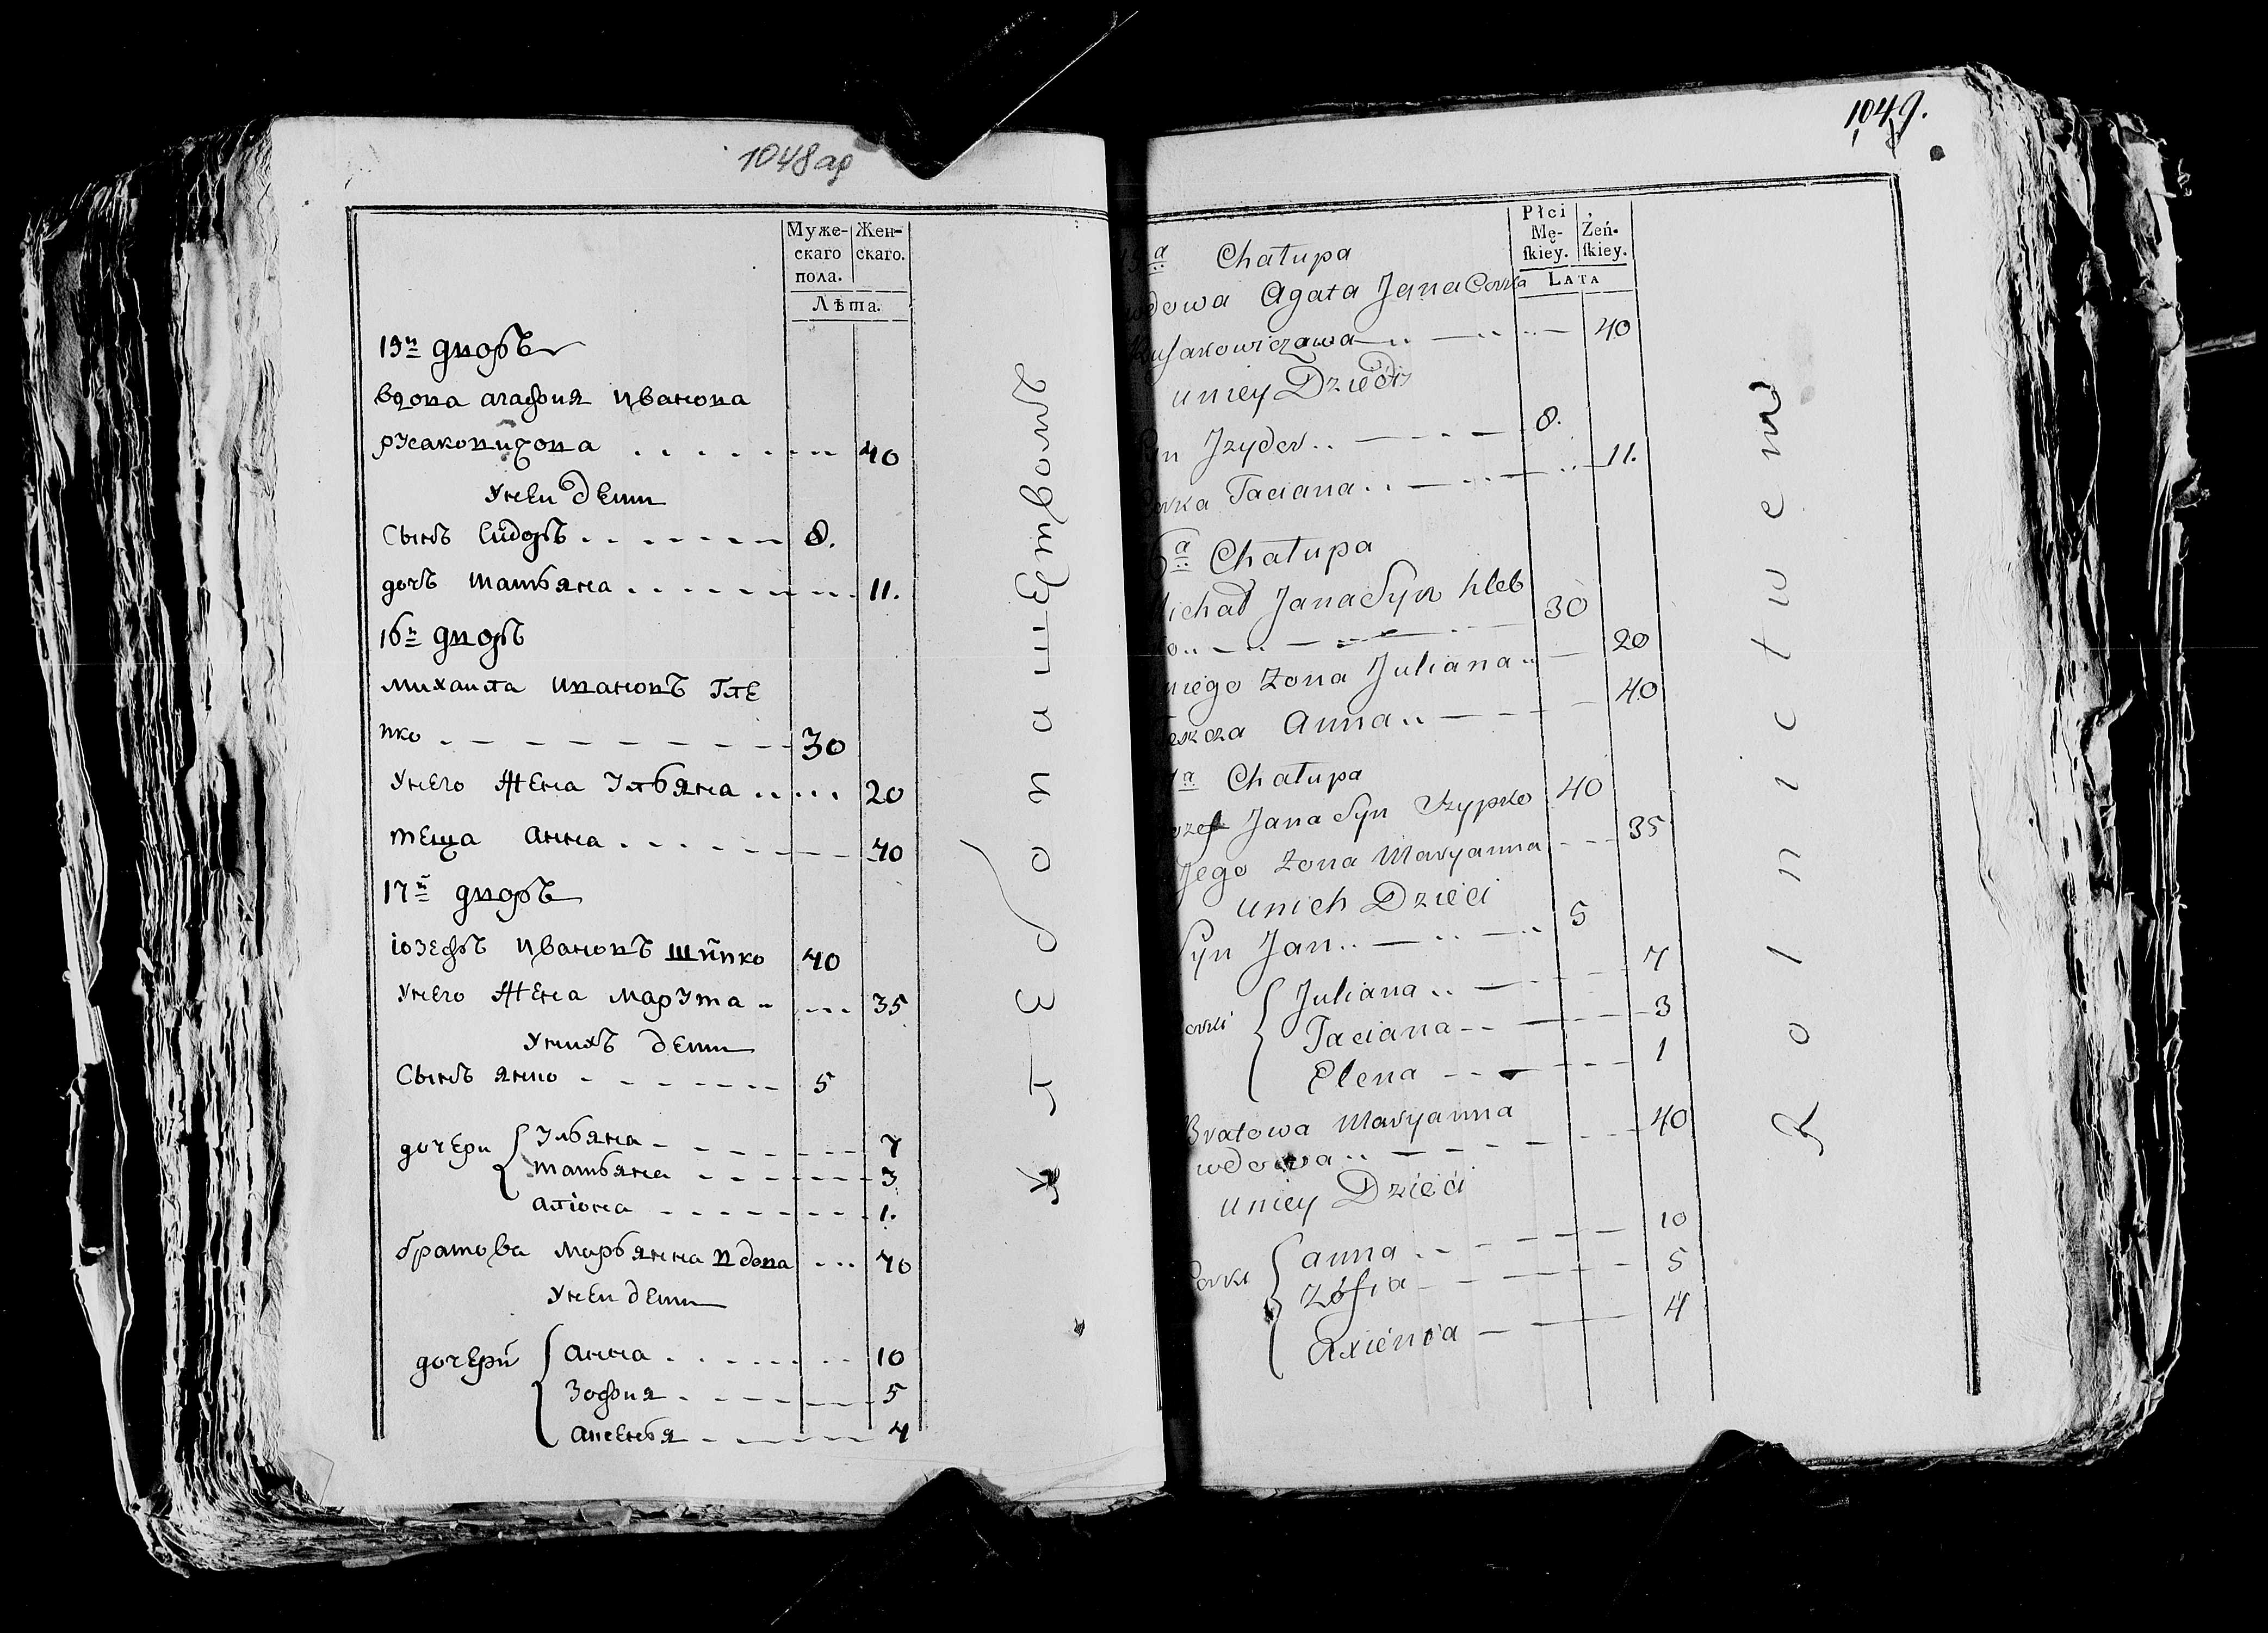 1048 ар
Муже-
скаго
пола.
Жен-
скаго.
Лѣта.
15й дворъ
вдова агафия иванова
40
Унеи дети
Сынъ Сидоръ 8.
дочь татьяна 11.
16й дворъ
михаила ивановъ Гле
бко 30
Унего жена Ульяна 20
теща анна 40
17й дворъ
іозефъ ивановъ шипко 40
Унего жена марута 35
Унихъ дети
Сынъ янко 5
дочери Ульяна 7
татьяна 3
алiона 1.
братова марьянна вдова 40
Унеи дети
дочери анна 10
Зофия 5
аксенья 4
1049.
Płci
Mę-
ſkiey.
Żeń-
ſkiey.
LATA
15a Chałupa
wdowa Agata Jana Corka
40
uniey Dzieći
Syn Jzydor 8.
Corka Taciana 11.
16a Chałupa
Michał Jana Syn hleb
ko 30
uniego Zona Juliana 20
Teszcza Anna 40
17a Chałupa
Jozef Jana Syn Szypko 40
Jego Zona Maryanna 35
unich Dzieći
Syn Jan 5
Corki Juliana 7
Taciana 3
Elena 1
Bratowa Maryanna
wdowa 40
uniey Dzieći
Corki anna 10
Zofia 5
Axienia 4
Rolnictwem